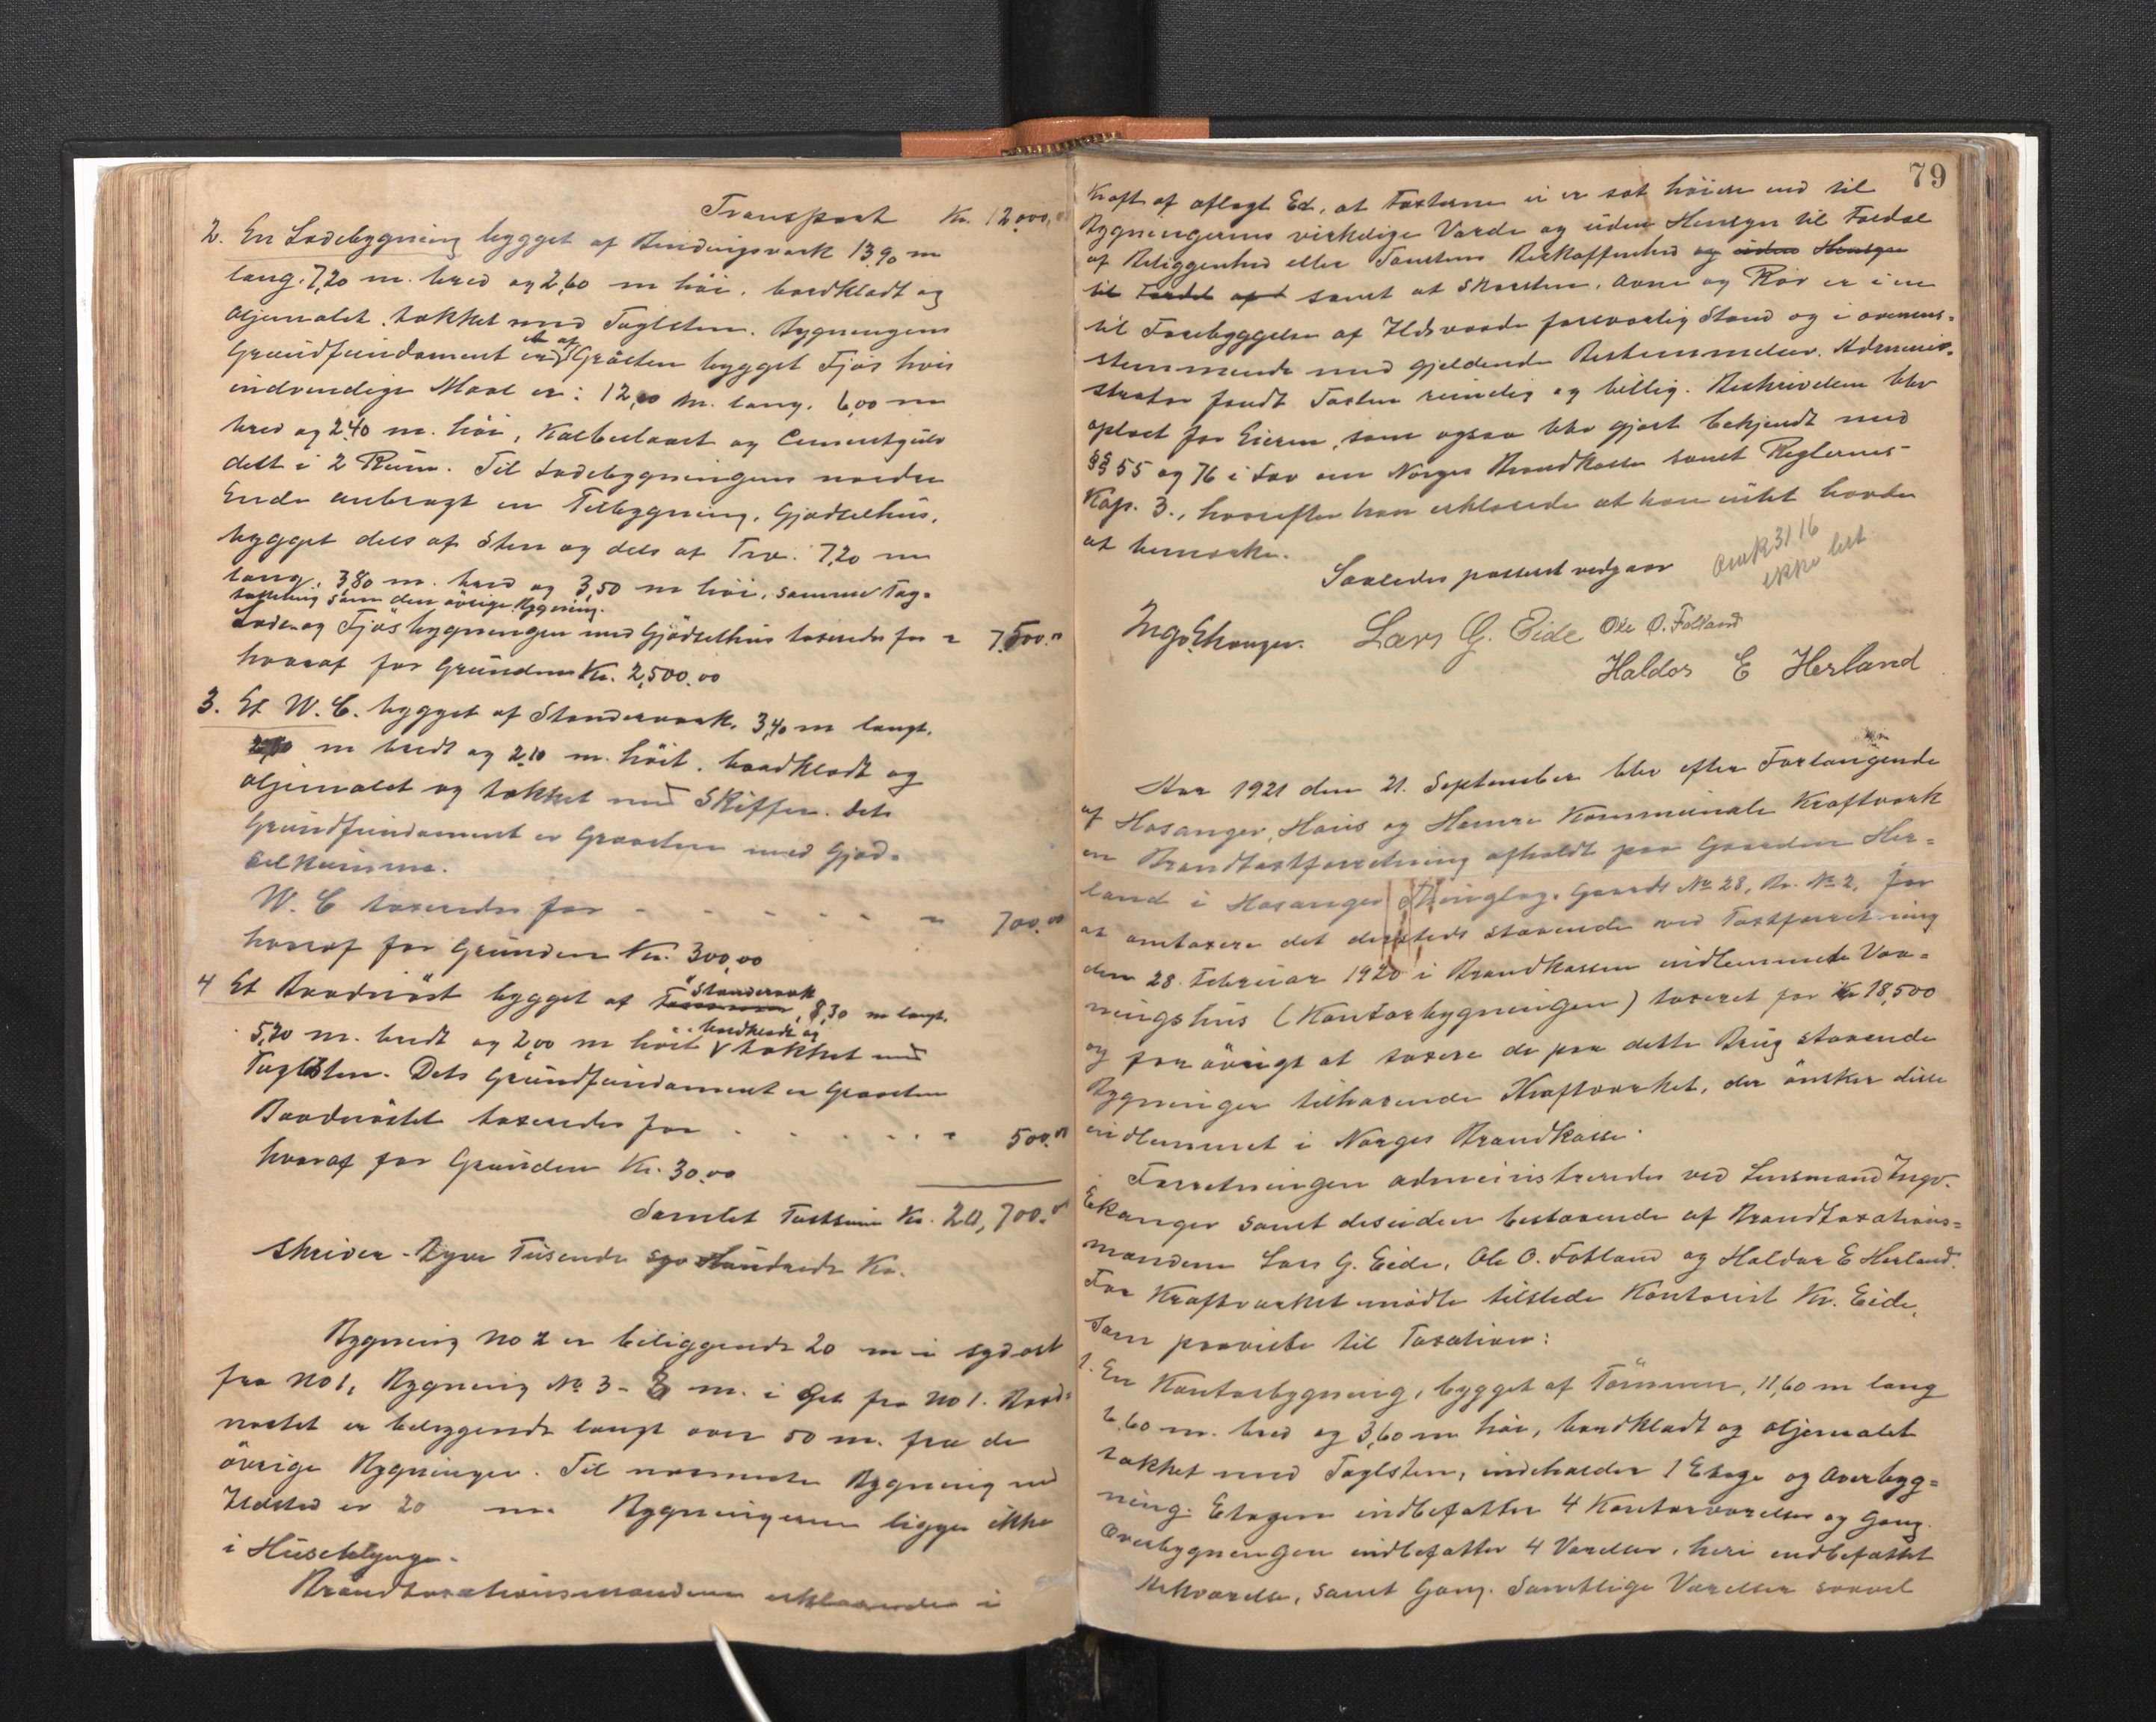 Transport Kr. 12,000.00
2. En Ladebygning bygget af Bindingsværk 13,90 m
lang, 7,20 m. bred og 2,60 m høi, bordklædt og
oljemalet, tækket med Taglsten. Bygningens
Grundfundament er et af Graasten bygget Fjøs hvis
indvendige Maal er: 12,00 m. lang, 6,00 m
bred og 2,40 m. høi, Cementgulv
delt i 2 Rum. Til Ladebygningens nordre
Ende anbragt en Tilbygning, Gjødselhus,
bygget dels af Sten og dels af Træ. 7,20 m
lang, 3,80 m. bred og 3,50 m høi, samme Tag-
tækning som den øvrige Bygning.
Lade og Fjøsbygningen med Gjødselhus taxeredes for " 7,500.00
hvoraf for Grunden Kr. 2,500.00
3. Et W. C. bygget af Stenderværk, 3,40 m langt,
m bredt og 2,10 m. høit, bordklædt og
oljemalet og tækket med Skiffer. Dets
Grundfundament er Graasten med Gjød-
selkumme.
W. C taxeredes for - - - - - " 700.00
hvoraf for Grunden Kr. 300,00
4 Et Baadnøst bygget af Stenderværk, 8,30 m langt,
5,20 m. bredt og 2,00 m høit bordklædt og tækket med
Taglsten. Dets Grundfundament er Graasten
Baadnøstet taxeredes for - - - - - " 500.00
hvoraf for Grunden Kr. 30.00
Samlet Taxtsum Kr. 20,700.00
skriver - Tyve Tusende syv Hundrede Kr.
Bygning No 2 er beliggende 20 m i sydost
fra No 1, Bygning No 3 - 8 m. i Øst fra No 1. Baad-
nøstet er beliggende langt over 50 m. fra de
øvrige Bygninger. Til nærmeste Bygning med
Ildsted er 20 m. Bygningerne ligger ikke
i Huseklynge.
Brandtaxationsmændene erklærede i
79
Kraft af aflagt Ed, at Taxterne ei er sat høiere end til
Bygningernes virkelige Værde og uden Hensyn til Fordel
af Beliggenhed eller Tomtens Beskaffenhed og uden Hensyn
til Fordel af samt at Skorsten, Ovne og Rør er i en
til Forebyggelse af Ildsvaade forsvarlig Stand og i overens-
stemmende med gjeldende Bestemmelser. Admini-
strator fandt Taxten rimelig og billig. Beskrivelsen blev
oplæst for Eieren, som ogsaa blev gjort bekjendt med
§§ 55 og 76 i Lov om Norges Brandkasse samt Reglernes
Kap. 3., hvorefter han erklærede at han intet havde
at bemærke.
Saaledes passeret vedgaar
Ingv. Ekanger. Lars G. Eide Ole O. Fotland
Haldor E Herland
Aar 1921 den 21. September blev efter Forlangende
af Hosanger, Haus og Hamre Kommunale Kraftværk
en Brandtaxtforretning afholdt paa Gaarden Her-
land i Hosanger Thinglag, Gaards No 28, Br. No 2, for
at omtaxere det dersteds staaende ved Taxtforretning
den 28. Februar 1920 i Brandkassen indlemmede Vaa-
ningshus (Kontorbygningen) taxeret for Kr 18,500
og forøvrigt at taxere de paa dette Brug staaende
Bygninger tilhørende Kraftværket, der ønsker disse
indlemmet i Norges Brandkasse.
Forretningen administreredes ved Lensmand Ingv.
Ekanger samt desuden bestaaende af Brandtaxations-
mændene Lars G. Eide, Ole O. Fotland og Haldor E Herland.
For Kraftværket mødte tilstede Kontorist Kr. Eide,
som paaviste til Taxation:
1. En Kontorbygning, bygget af Tømmer, 11,60 m lang
6,60 m. bred og 3,60 m høi, bordklædt og oljemalet
tækket med Taglsten, indeholder 1 Etage og Overbyg-
ning. Etagen indbefatter 4 Kontorværelser og Gang.
Overbygningen indbefatter 4 Værelser, heri indbefattet
samt Gang. Samtlige Værelser saavel